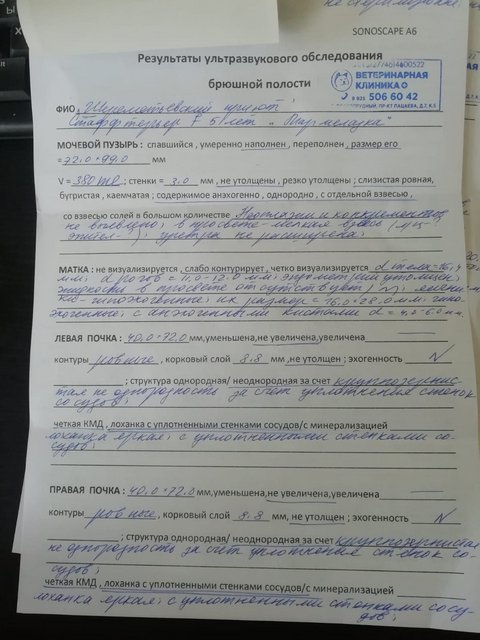 SONOSCAPE A6
Результаты ультразвукового обследования
брюшной полости
ВЕТЕРИНАРНАЯ
КЛИНИКА
8 925 506 60 42
ФИО Шереметьевский приют
Стаффтерьер F 5 лет "Мармеладка"
МОЧЕВОЙ ПУЗЫРЬ : спавшийся , умеренно наполнен , переполнен , размер его
= 72.0 × 99.0 мм
V = 380 ml ; стенки = 3.0 мм , не утолщены , резко утолщены ; слизистая ровная,
бугристая , каемчатая ; содержимое анэхогенно , однородно , с отдельной взвесью ,
со взвесью солей в большом количестве Неоплазии и конкрементов
не выявлено ; в просвете мелкая взвесь
эпител ; уретра не расширена .
МАТКА : не визуализируется , слабо контурирует , четко визуализируется d тела=16,4
мм; d рогов = 11.0-12.0 мм; эндометрий утолщен;
жидкости в просвете отсутствует ;
их размер = 16.0 × 28.0 мм;
с анэхогенными кистами d = 4,2-6.0 мм.
ЛЕВАЯ ПОЧКА : 40.0 × 72.0 мм,уменьшена,не увеличена,увеличена
контуры ровные , корковый слой 8.8 мм ,не утолщен ; эхогенность N
; структура однородная/ неоднородная за счет крупнозернис-
тая неоднородность за счет уплотнения стенок
сосудов ;
четкая КМД , лоханка с уплотненными стенками сосудов/с минерализацией
лоханка яркая, с уплотненными стенками со-
судов ;
ПРАВАЯ ПОЧКА : 40.0 × 72.0 мм,уменьшена,не увеличена,увеличена
контуры ровные , корковый слой 8.8 мм , не утолщен ; эхогенность N
; структура однородная/ неоднородная за счет крупнозернистая
неоднородность за счет уплотнения стенок со-
судов ;
четкая КМД , лоханка с уплотненными стенками сосудов/с минерализацией
лоханка яркая, с уплотненными стенками сосу-
дов ;